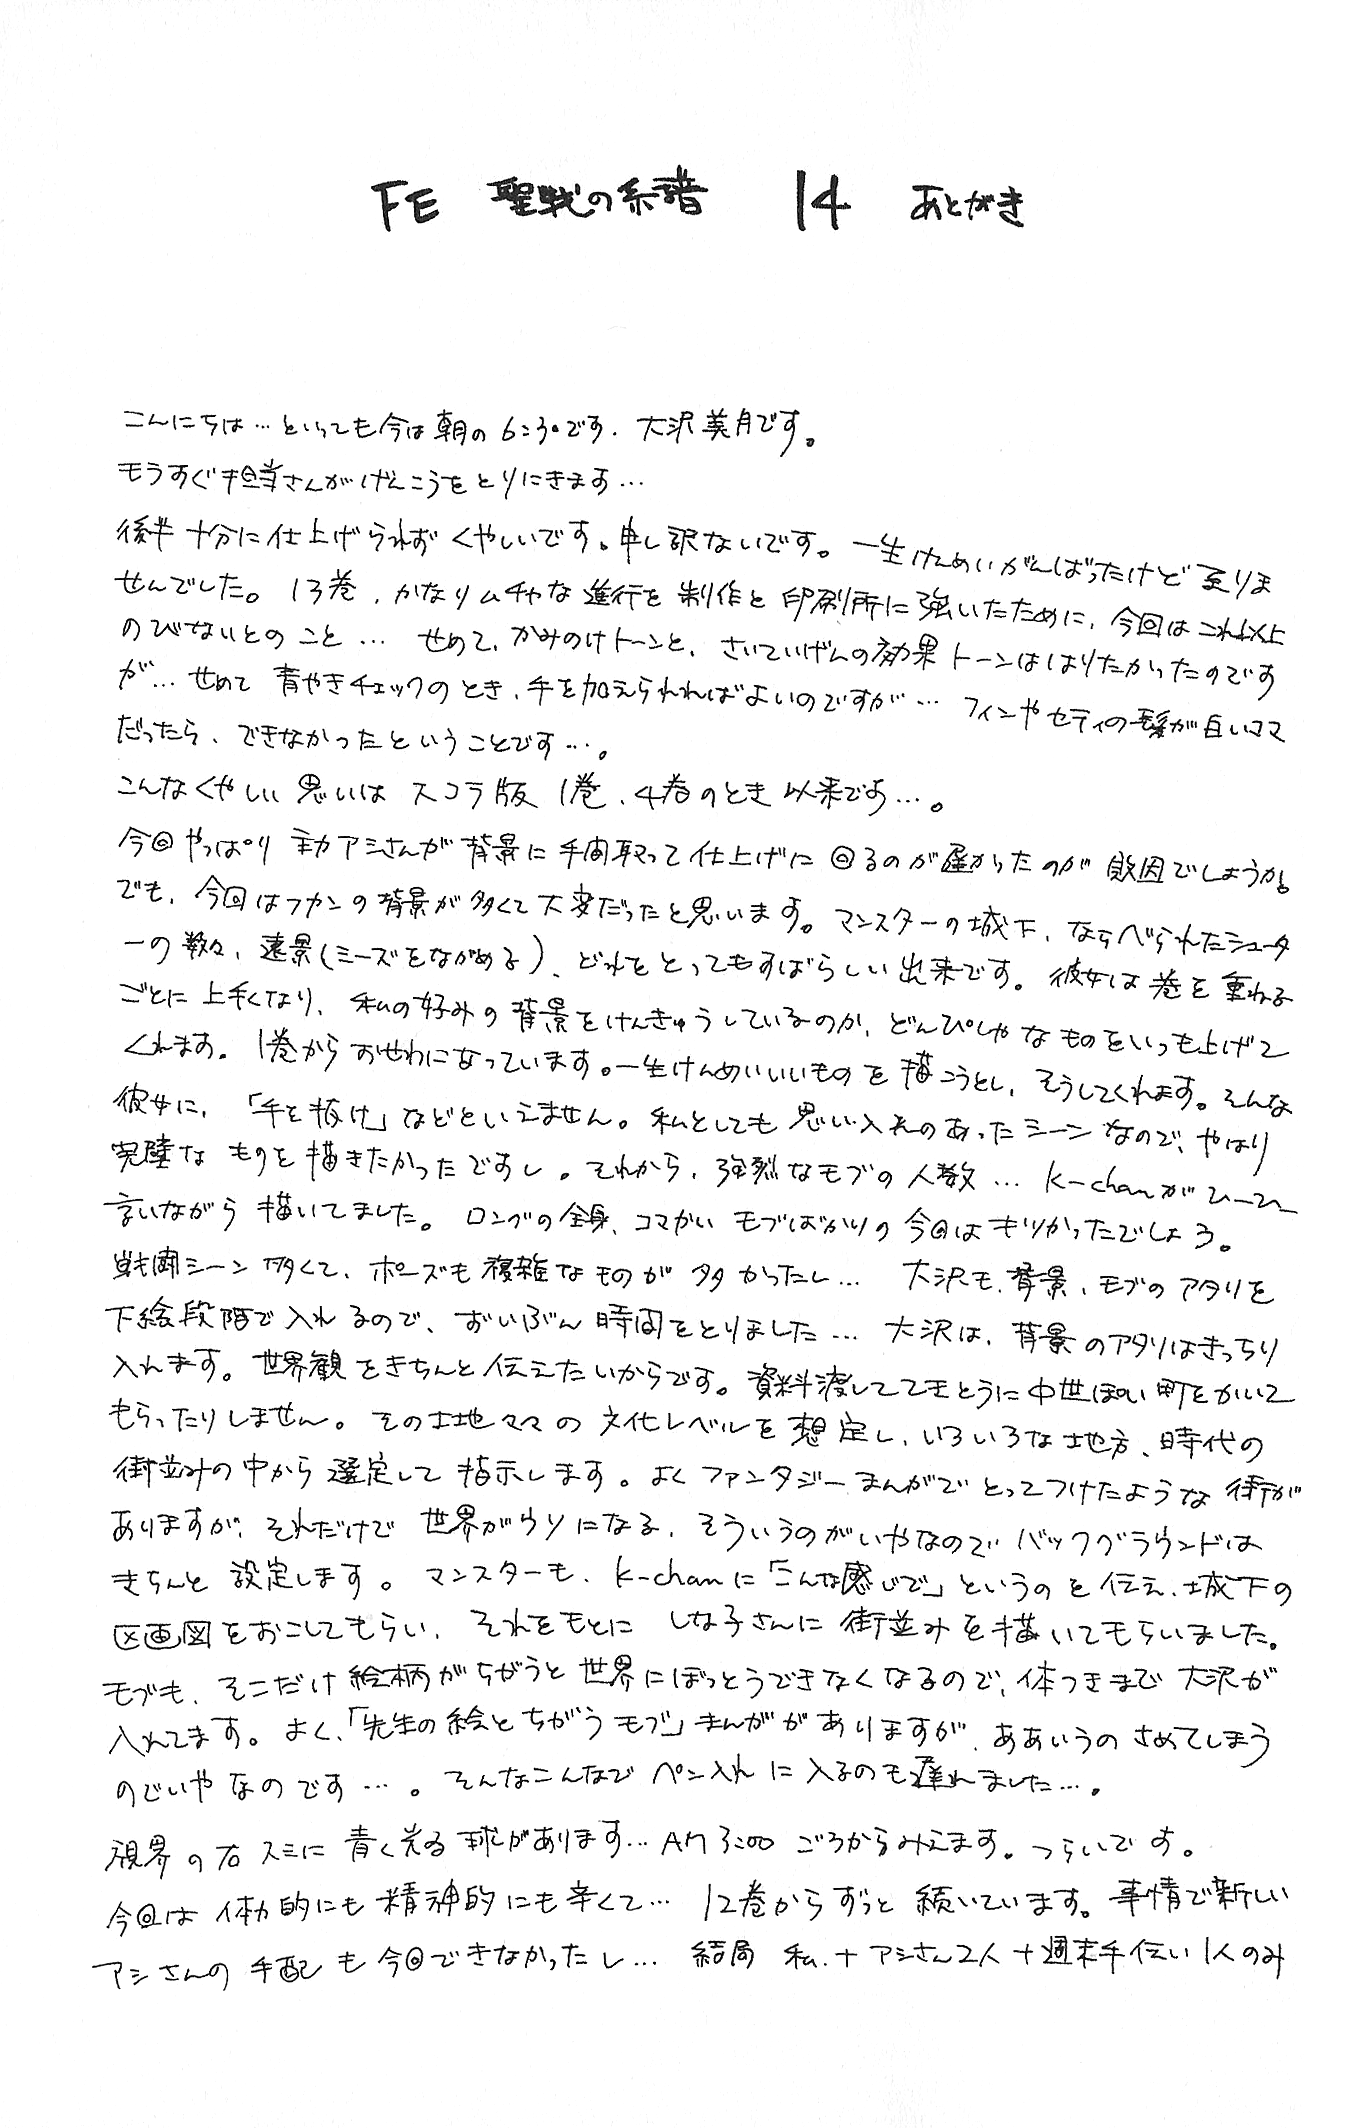 FE 聖戦の系譜 14 あとがき
こんにちは…といっても今は朝の6:30です. 大沢美月です。
モうすぐ担当さんがげんこうをとりにきます…
後半 十分に仕上げられず くやしいです。申し訳ないです。一生けんめいがんばったけど 至りま
せんでした。13巻、かなりムチャな進行を 制作と 印刷所に強いたために、今回は これ以上
のびないとのこと… せめて、かみのけトーンと、さいていげんの効果トーンははりたかったのです
が… せめて 青やきチェックのとき、手を加えられればよいのですが… フィンやセティの髪が白いママ
だったら、できなかったということです…。
こんなくやしい思いは スコラ版 1巻、4巻のとき以来です…。
今回やっぱり 主力アシさんが背景に手間取って仕上げに回るのが遅かったのが 敗因でしょうか。
でも、今回はフカンの背景が多くて大変だったと思います。マンスターの城下、ならべられたシュータ
ーの数々、遠景(ミーズをながめる)、どれをとってもすばらしい出来です。彼女は巻を重ねる
ごとに上手くなり、私の好みの背景をけんきゅうしているのか、どんぴしゃなものをいつも上げて
くれます。1巻からおせわになっています。一生けんめいいいものを描こうとし、そうしてくれます。そんな
彼女に、「手を抜け」などといえません。私としても思い入れのあったシーンなので、やはり
完璧なものを描きたかったですし。それから、強烈なモブの人数… K-chanがひーひー
言いながら描いてました。ロングの全身、コマかいモブばかりの今回はキツかったでしょう。
戦闘シーン多くて、ポーズも複雑なものが多かったし… 大沢も、背景、モブのアタリを
下絵段階で入れるので、ずいぶん時間をとりました… 大沢は、背景のアタリはきっちり
入れます。世界観をきちんと伝えたいからです。資料渡しててきとうに中世ぽい町をかいて
もらったりしません。その土地ママの文化レベルを想定し、いろいろな地方、時代の
街並みの中から選定して指示します。よくファンタジーまんがでとってつけたような街が
ありますが、それだけで世界がウソになる、そういうのがいやなのでバックグラウンドは
きちんと設定します。マンスターも、K-chanに「こんな感じで」というのを伝え、城下の
区画図をおこしてもらい、それをもとに しな子さんに街並みを描いてもらいました。
モブも、そこだけ絵柄がちがうと世界にぼっとうできなくなるので、体つきまで大沢が
入れてます。よく、「先生の絵とちがうモブ」まんががありますが、ああいうのさめてしまう
のでいやなのです…。そんなこんなでペン入れに入るのも遅れました…。
視界の右スミに青く光る球があります… AM 3:00ごろからみえます。つらいです。
今回は体力的にも精神的にも辛くて… 12巻からずっと続いています。事情で新しい
アシさんの手配も今回できなかったし… 結局 私+アシさん2人+週末手伝い1人のみ